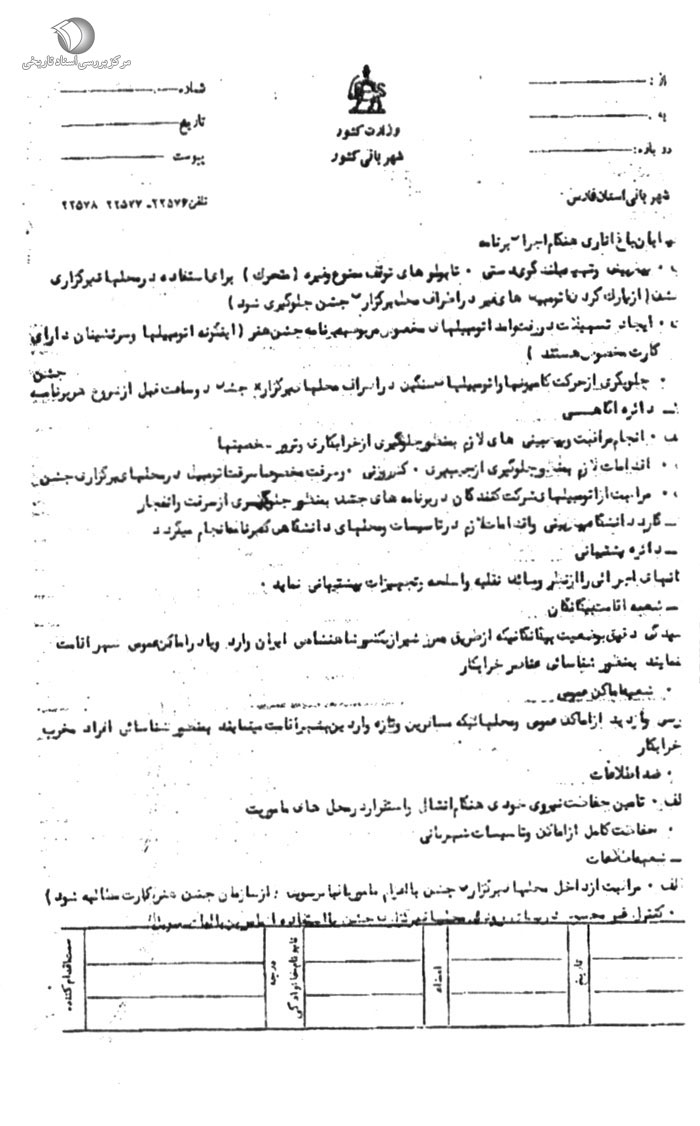 مرکز بررسی اسناد تاریخی
از :
شماره
وزارت کشور
به .
تاریخ
شهربانی کشور
درباره :
پیوست
شهربانی استان فارس
تلفن ۲۲۵۷۶ - ۲۲۵۷۷ ۲۲۵۷۸
خیابان باغ اناری هنگام اجرا برنامه
تابلوهای توقف ممنوع وغیره ( متحرک ) برای استفاده در محلهای برگزاری
جشن ( از پارک کردن اتومبیل های غیر در اطراف محل برگزاری جشن جلوگیری شود )
ایجاد تسهیلات در رفت وآمد اتومبیلهای مخصوص مربوط به برنامه جشن هنر ( اینگونه اتومبیلها وسرنشینان دارای
کارت مخصوص هستند )
جشن
جلوگیری از حرکت کامیونها واتومبیلهای سنگین در اطراف محلهای برگزاری جشن دو ساعت قبل از شروع هر برنامه
دائره آگاهی
انجام مراقبت وپیش بینی های لازم بمنظور جلوگیری از خرابکاری وترور شخصیتها
اقدامات لازم بمنظور جلوگیری از جیب بری ٠ کف زنی ٠ وسرقت مخصوصا سرقت اتومبیل در محلهای برگزاری جشن
مراقبت از اتومبیلهای شرکت کنندگان در برنامه های جشن بمنظور جلوگیری از سرقت وانفجار
گارد دانشگاه پیش بینی واقدامات لازم در تاسیسات ومحلهای دانشگاهی که برنامه انجام میگردد
ـ دائره پشتیبانی
اجرائی را از نظر وسائط نقلیه واسلحه وتجهیزات پشتیبانی نماید ٠
ـ شعبه اقامت بیگانگان
رسیدگی دقیق بوضعیت بیگانگانیکه از طریق مرز شیراز بکشور شاهنشاهی ایران وارد ویا در اماکن عمومی شهر اقامت
نمایند بمنظور شناسائی عناصر خرابکار
٠ شعبه اماکن عمومی
بررسی وبازدید از اماکن عمومی ومحلهائیکه مسافرین وتازه واردین بشهر اقامت مینمایند بمنظور شناسائی افراد مخرب
خرابکار
٠ ضد اطلاعات
الف ٠ تامین حفاظت نیروی خودی هنگام انتقال واستقرار در محل های ماموریت
حفاظت کامل از اماکن وتاسیسات شهربانی
ـ شعبه اطلاعات
الف ٠ مراقبت از داخل محلهای برگزاری جشن با اعزام مامور ( از سازمان جشن هنر کارت مطالبه شود )
٠ کنترل غیر محسوس
تاریخ
امضاء
نام ونام خانوادگی
درجه
سمت اقدام کننده